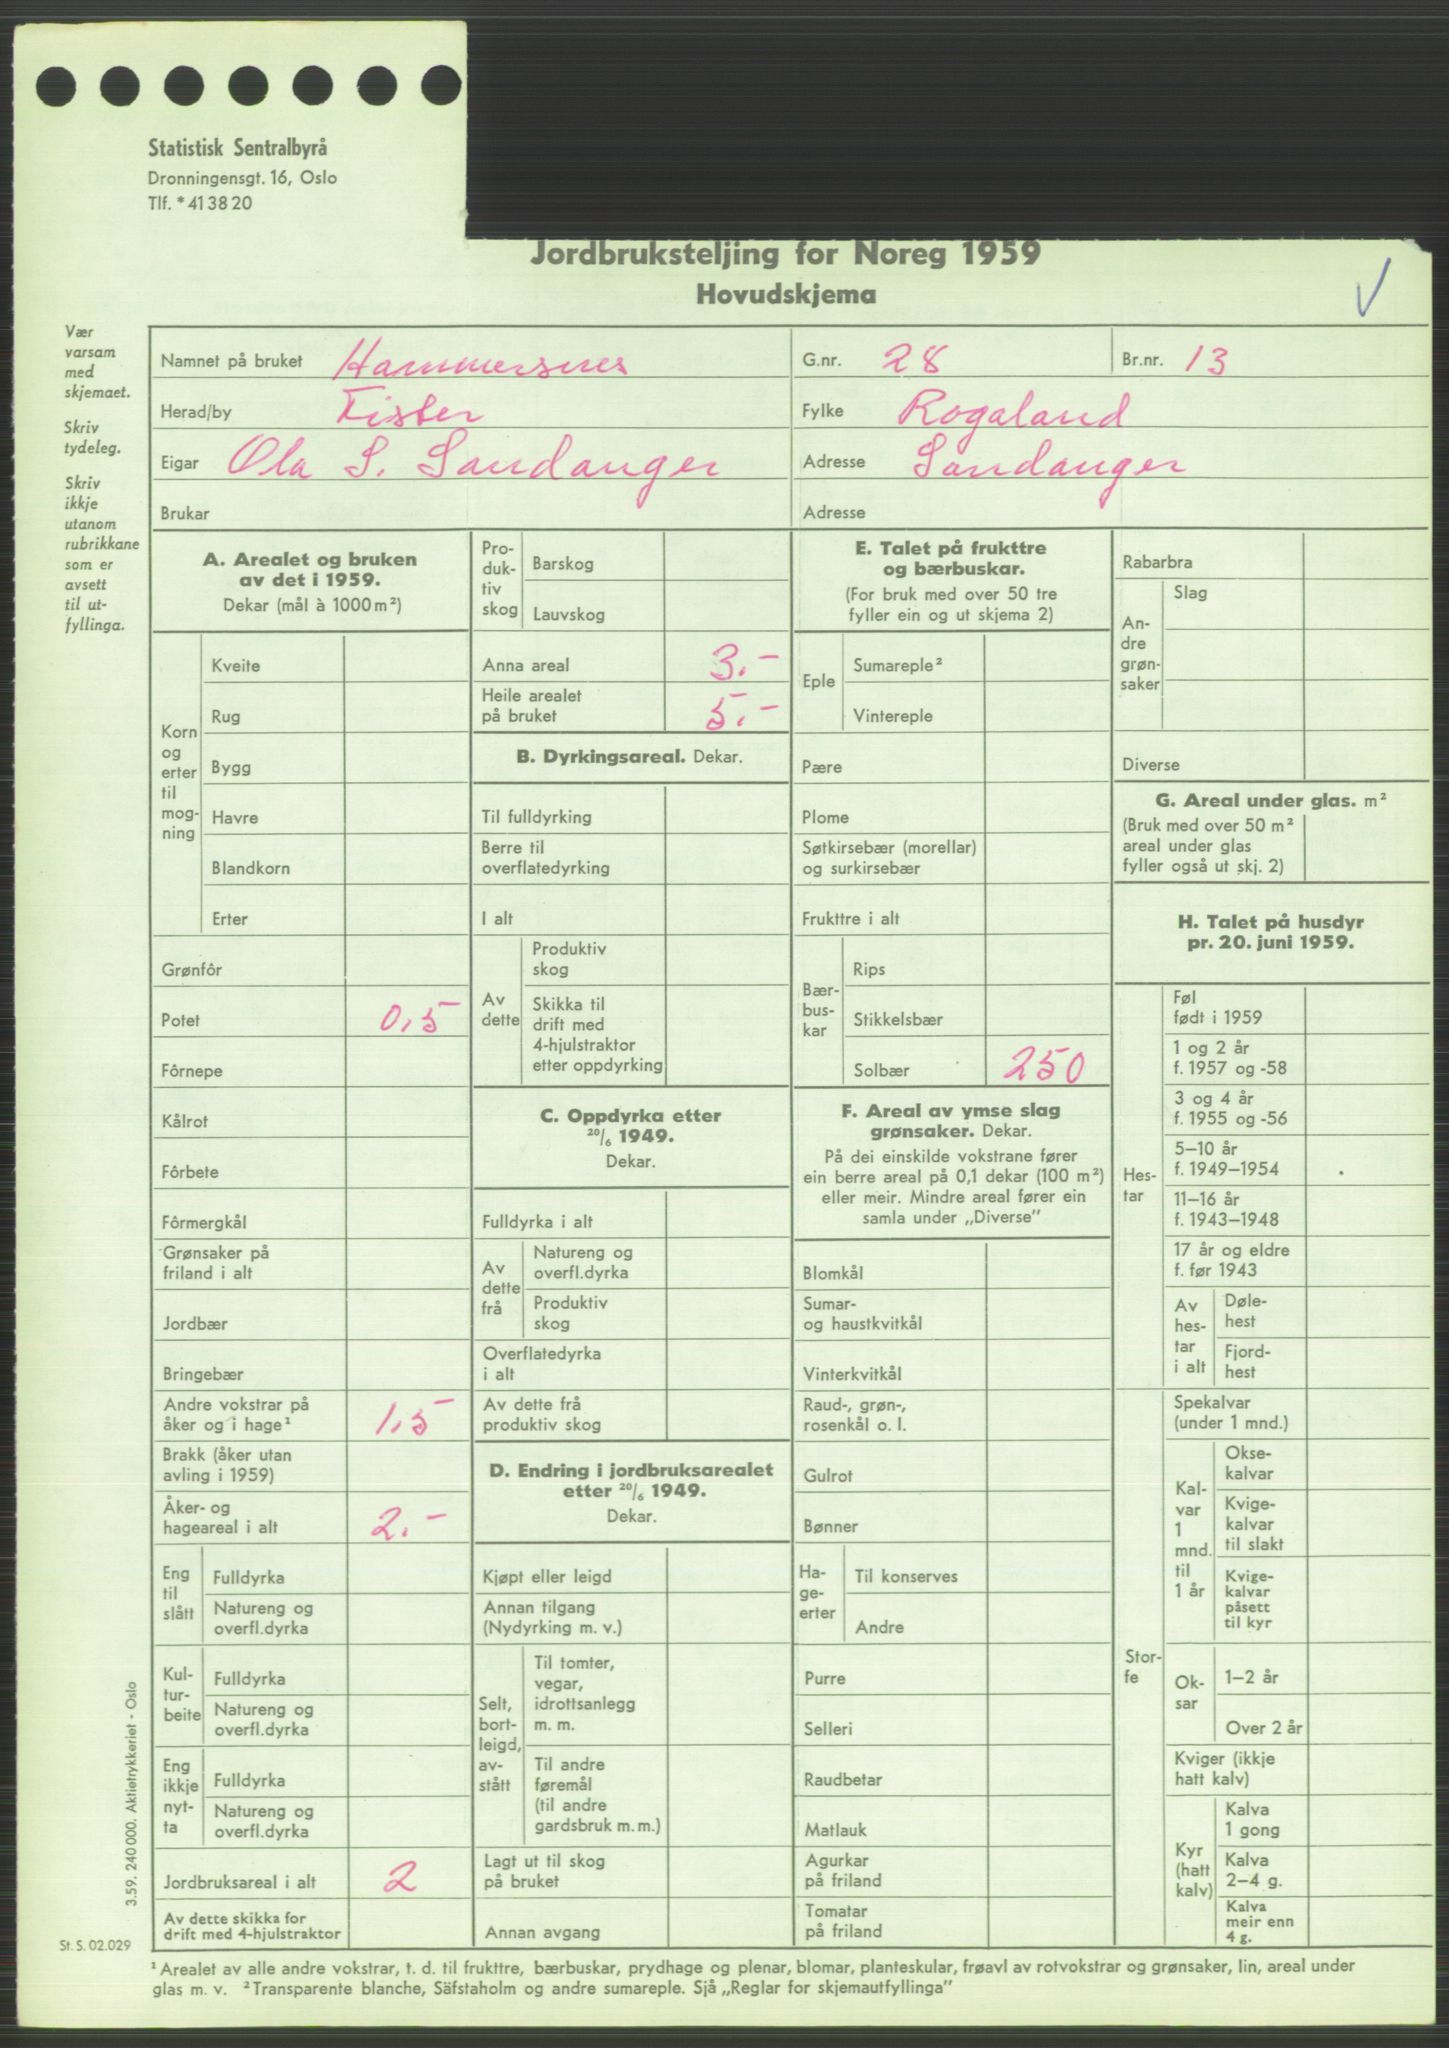 Statistisk Sentralbyrå
Dronningensgt. 16, Oslo
Tlf. * 41 38 20
Jordbruksteljing for Noreg 1959
Hovudskjema
Vær
varsam
med
skjemaet.
Skriv
tydeleg.
Skriv
ikkje
utanom
rubrikkane
som er
avsett
til ut-
fyllinga.
Namnet på bruket Hammersnes G.nr. 28 Br.nr. 13
Herad/by Fister Fylke Rogaland
Eigar Ola S. Sandanger Adresse Sandanger
Brukar Adresse
A. Arealet og bruken
av det i 1959.
Dekar (mål à 1000 m²)
Korn
og
erter
til
mog-
ning
Kveite
Rug
Bygg
Havre
Blandkorn
Erter
Grønfôr
Potet 0,5
Fôrnepe
Kålrot
Fôrbete
Fôrmergkål
Grønsaker på
friland i alt
Jordbær
Bringebær
Andre vokstrar på
åker og i hage¹ 1,5
Brakk (åker utan
avling i 1959)
Åker- og
hageareal i alt 2.-
Eng
til
slått
Fulldyrka
Natureng og
overfl.dyrka
Kul-
tur-
beite
Fulldyrka
Natureng og
overfl.dyrka
Eng
ikkje
nyt-
ta
Fulldyrka
Natureng og
overfl.dyrka
Jordbruksareal i alt 2
Av dette skikka for
drift med 4-hjulstraktor
Pro-
duk-
tiv
skog
Barskog
Lauvskog
Anna areal 3.-
Heile arealet
på bruket 5.-
B. Dyrkingsareal. Dekar.
Til fulldyrking
Berre til
overflatedyrking
I alt
Av
dette
Produktiv
skog
Skikka til
drift med
4-hjulstraktor
etter oppdyrking
C. Oppdyrka etter
20/6 1949.
Dekar.
Fulldyrka i alt
Av
dette
frå
Natureng og
overfl.dyrka
Produktiv
skog
Overflatedyrka
i alt
Av dette frå
produktiv skog
D. Endring i jordbruksarealet
etter 20/6 1949.
Dekar.
Kjøpt eller leigd
Annan tilgang
(Nydyrking m. v.)
Selt,
bort-
leigd,
av-
stått
Til tomter,
vegar,
idrottsanlegg
m. m.
Til andre
føremål
(til andre
gardsbruk m. m.)
Lagt ut til skog
på bruket
Annan avgang
E. Talet på frukttre
og bærbuskar.
(For bruk med over 50 tre
fyller ein og ut skjema 2)
Eple
Sumareple²
Vintereple
Pære
Plome
Søtkirsebær (morellar)
og surkirsebær
Frukttre i alt
Bær-
bus-
kar
Rips
Stikkelsbær
Solbær 250
F. Areal av ymse slag
grønsaker. Dekar.
På dei einskilde vokstrane fører
ein berre areal på 0,1 dekar (100 m²)
eller meir. Mindre areal fører ein
samla under „Diverse”
Blomkål
Sumar-
og haustkvitkål
Vinterkvitkål
Raud-, grøn-,
rosenkål o. l.
Gulrot
Bønner
Ha-
ge-
erter
Til konserves
Andre
Purre
Selleri
Raudbetar
Matlauk
Agurkar
på friland
Tomatar
på friland
Rabarbra
An-
dre
grøn-
saker
Slag
Diverse
G. Areal under glas. m²
(Bruk med over 50 m²
areal under glas
fyller også ut skj. 2)
H. Talet på husdyr
pr. 20. juni 1959.
Hes-
tar
Føl
født i 1959
1 og 2 år
f. 1957 og -58
3 og 4 år
f. 1955 og -56
5–10 år
f. 1949–1954
11–16 år
f. 1943–1948
17 år og eldre
f. før 1943
Av
hes-
tar
i alt
Døle-
hest
Fjord-
hest
Stor-
fe
Spekalvar
(under 1 mnd.)
Kal-
var
1
mnd.
til
1 år
Okse-
kalvar
Kvige-
kalvar
til slakt
Kvige-
kalvar
påsett
til kyr
Ok-
sar
1–2 år
Over 2 år
Kviger (ikkje
hatt kalv)
Kyr
(hatt
kalv)
Kalva
1 gong
Kalva
2–4 g.
Kalva
meir enn
4 g.
3.59. 240 000. Aktietrykkeriet - Oslo
St. S. 02.029
¹ Arealet av alle andre vokstrar, t. d. til frukttre, bærbuskar, prydhage og plenar, blomar, planteskular, frøavl av rotvokstrar og grønsaker, lin, areal under
glas m. v. ² Transparente blanche, Säfstaholm og andre sumareple. Sjå „Reglar for skjemautfyllinga”